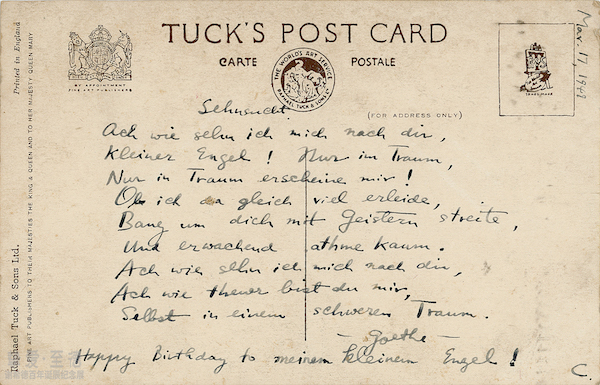 TUCK'S POST CARD
CARTE POSTALE
BY APPOINTMENT
FINE ART PUBLISHERS
THE WORLD'S ART SERVICE
RAPHAEL TUCK & SONS LTD
(FOR ADDRESS ONLY)
TRADE MARK
Mar. 17,
Printed in England
FINE ART PUBLISHERS TO THEIR MAJESTIES THE KING & QUEEN AND TO HER MAJESTY QUEEN MARY
Raphael Tuck & Sons Ltd.
Sehnsucht.
Ach wie sehn ich mich nach dir,
Kleiner Engel! Nur im Traum,
Nur im Traum erscheine mir!
Ob ich da gleich viel erleide,
Bang um dich mit Geistern streite,
Und erwachend athme kaum.
Ach wie sehn ich mich nach dir,
Ach wie theuer bist du mir,
Selbst in einem schweren Traum.
— Goethe —
Happy Birthday to meinem kleinem Engel!
C.